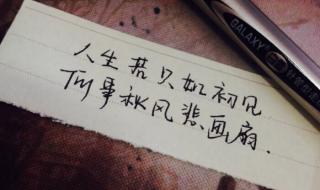 人生若只如初见
何事秋风悲画扇.
GALAXY